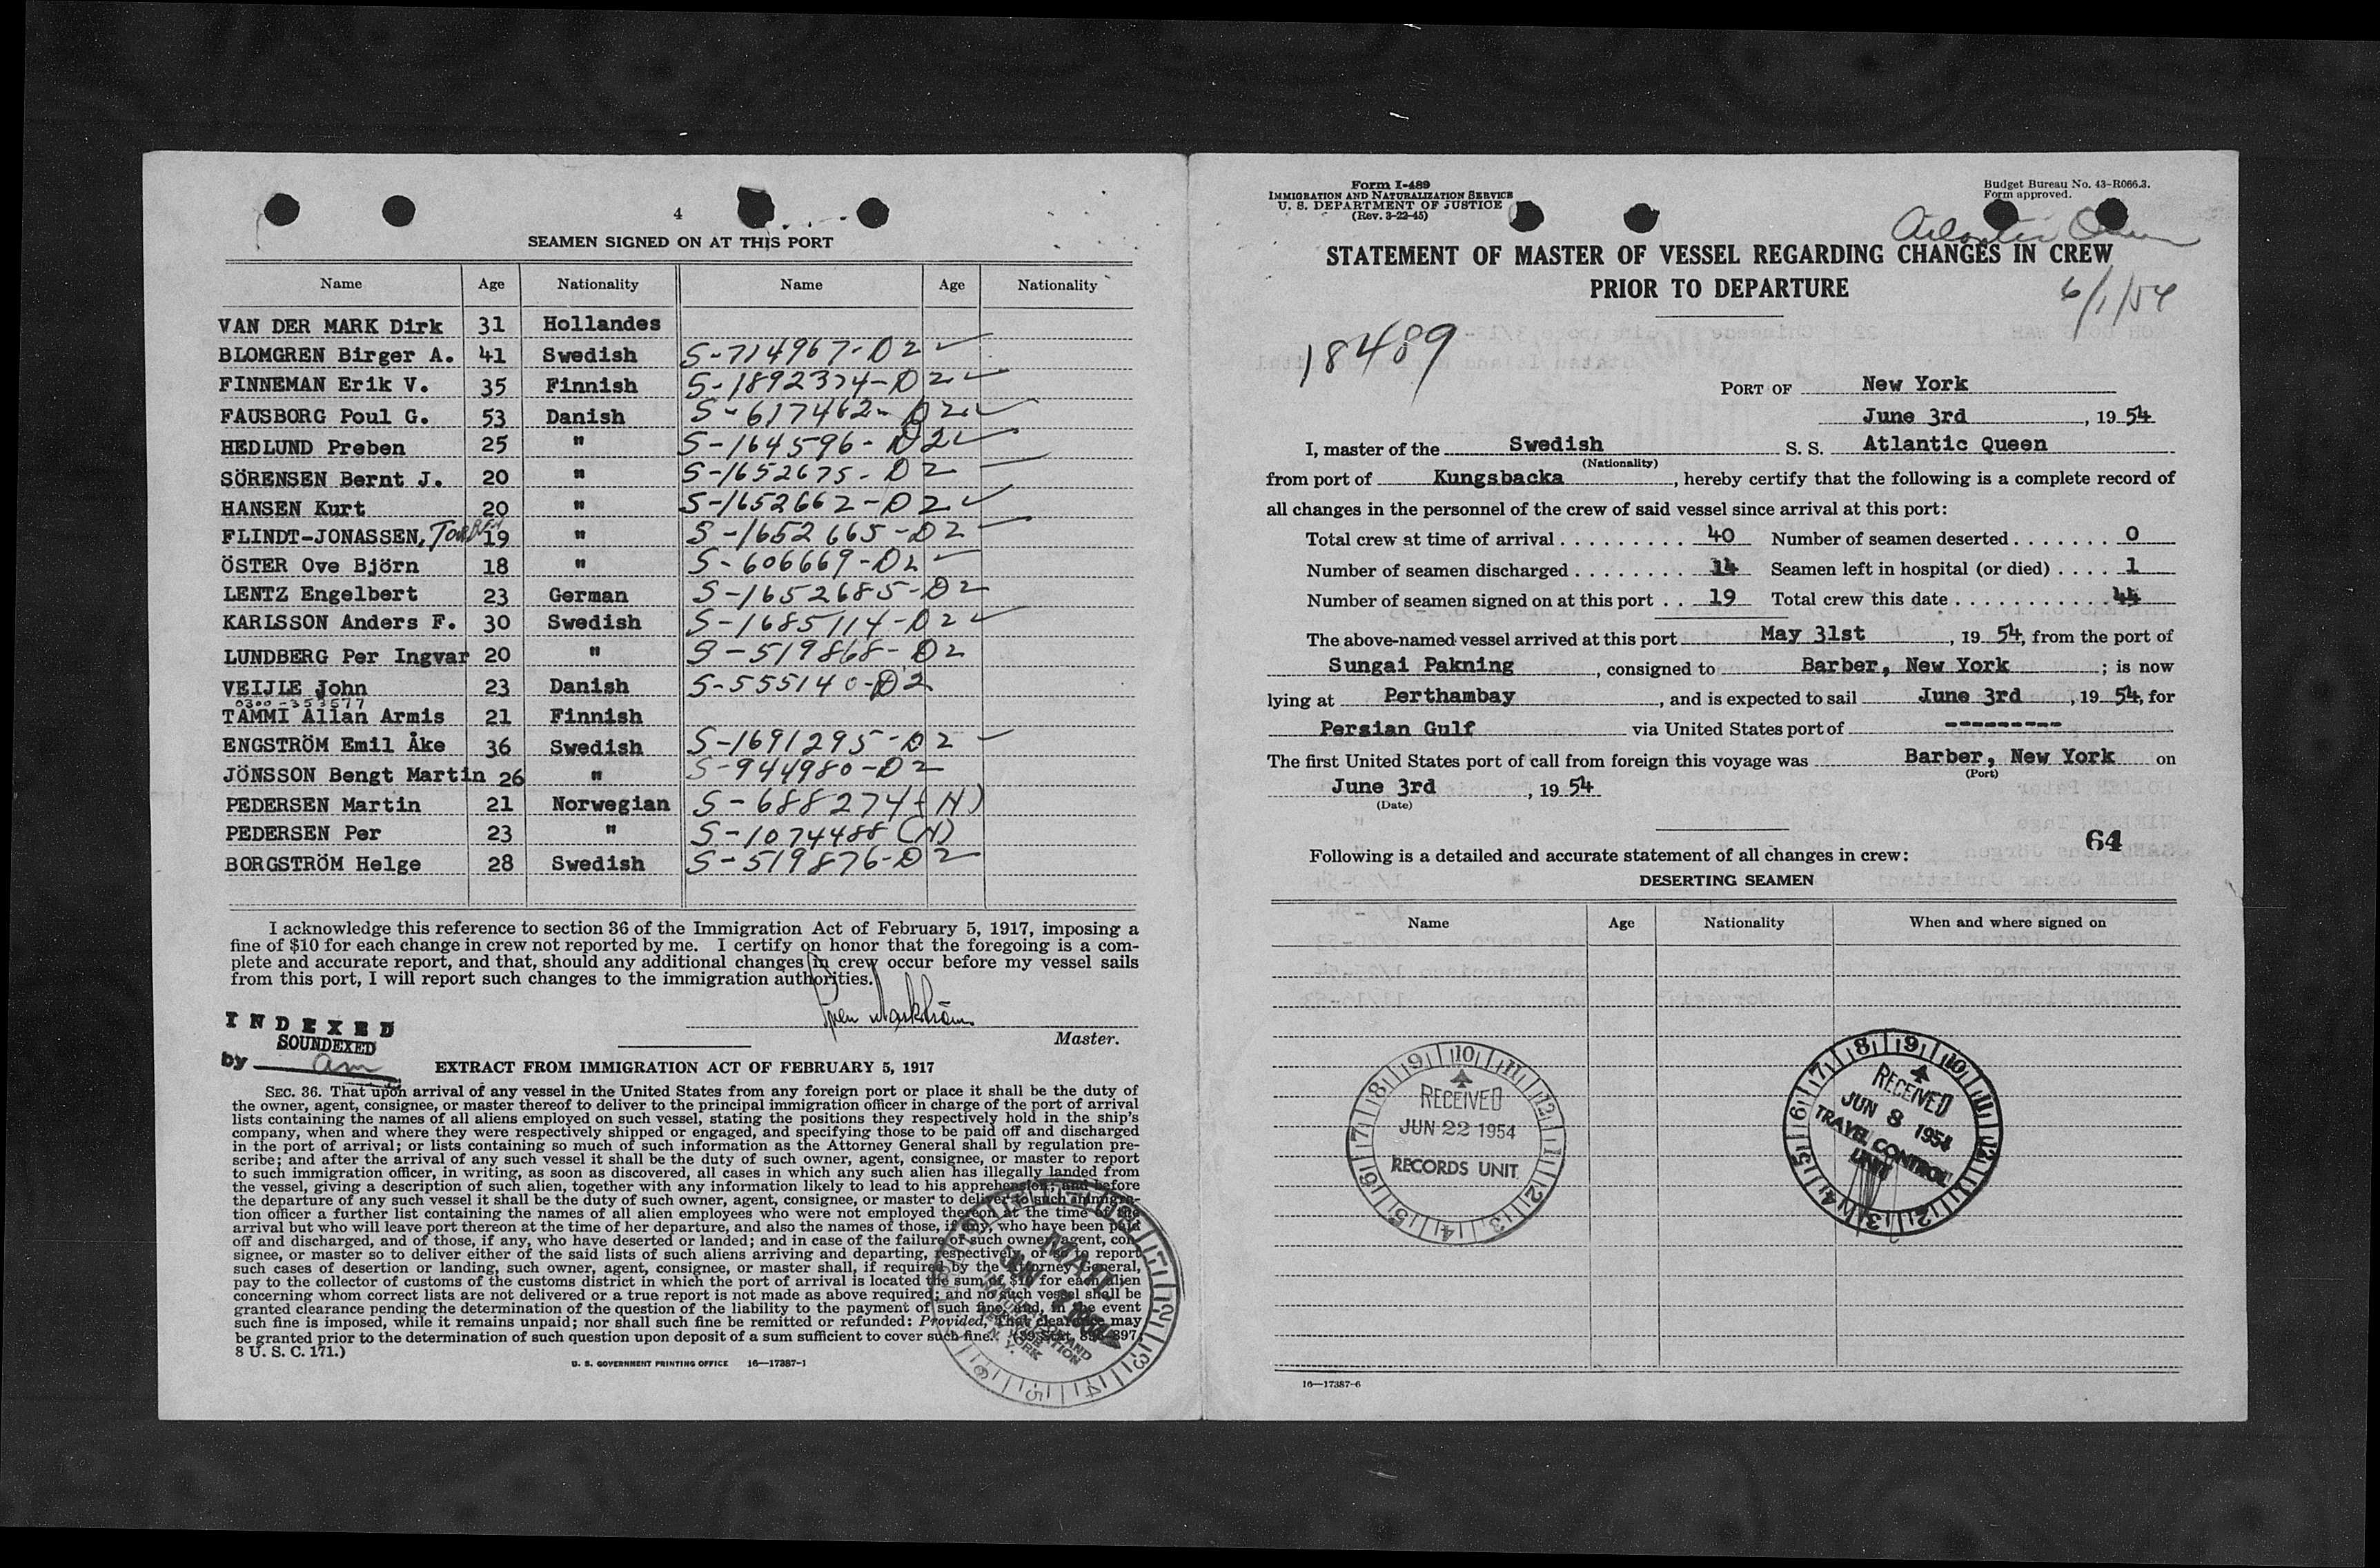 4
SEAMEN SIGNED ON AT THIS PORT
Name Age Nationality Name Age Nationality
VAN DER MARK Dirk 31 Hollandes
BLOMGREN Birger A. 41 Swedish S-714967-D2 ✓
FINNEMAN Erik V. 35 Finnish S-1892374-D2 ✓
FAUSBORG Poul G. 53 Danish S-617462-D2 ✓
HEDLUND Preben 25 " S-164596-D2 ✓
SÖRENSEN Bernt J. 20 " S-1652675-D2
HANSEN Kurt 20 " S-1652662-D2 ✓
FLINDT-JONASSEN, Torben 19 " S-1652665-D2
ÖSTER Ove Björn 18 " S-606669-D2
LENTZ Engelbert 23 German S-1652685-D2
KARLSSON Anders F. 30 Swedish S-1685114-D2 ✓
LUNDBERG Per Ingvar 20 " S-519868-D2
VEIJLE John 23 Danish S-555140-D2
0300-353577
TAMMI Allan Armis 21 Finnish
ENGSTRÖM Emil Åke 36 Swedish S-1691295-D2
JÖNSSON Bengt Martin 26 " S-944980-D2
PEDERSEN Martin 21 Norwegian S-688274 (N)
PEDERSEN Per 23 " S-1074488 (N)
BORGSTRÖM Helge 28 Swedish S-519876-D2
I acknowledge this reference to section 36 of the Immigration Act of February 5, 1917, imposing a
fine of $10 for each change in crew not reported by me. I certify on honor that the foregoing is a com-
plete and accurate report, and that, should any additional changes in crew occur before my vessel sails
from this port, I will report such changes to the immigration authorities.
Master.
INDEXED
SOUNDEXED
by am
EXTRACT FROM IMMIGRATION ACT OF FEBRUARY 5, 1917
SEC. 36. That upon arrival of any vessel in the United States from any foreign port or place it shall be the duty of
the owner, agent, consignee, or master thereof to deliver to the principal immigration officer in charge of the port of arrival
lists containing the names of all aliens employed on such vessel, stating the positions they respectively hold in the ship's
company, when and where they were respectively shipped or engaged, and specifying those to be paid off and discharged
in the port of arrival; or lists containing so much of such information as the Attorney General shall by regulation pre-
scribe; and after the arrival of any such vessel it shall be the duty of such owner, agent, consignee, or master to report
to such immigration officer, in writing, as soon as discovered, all cases in which any such alien has illegally landed from
the vessel, giving a description of such alien, together with any information likely to lead to his apprehension; and before
the departure of any such vessel it shall be the duty of such owner, agent, consignee, or master to deliver to such immigra-
tion officer a further list containing the names of all alien employees who were not employed thereon at the time of the
arrival but who will leave port thereon at the time of her departure, and also the names of those, if any, who have been paid
off and discharged, and of those, if any, who have deserted or landed; and in case of the failure of such owner, agent, con-
signee, or master so to deliver either of the said lists of such aliens arriving and departing, respectively, or so to report
such cases of desertion or landing, such owner, agent, consignee, or master shall, if required by the Attorney General,
pay to the collector of customs of the customs district in which the port of arrival is located the sum of $10 for each alien
concerning whom correct lists are not delivered or a true report is not made as above required; and no such vessel shall be
granted clearance pending the determination of the question of the liability to the payment of such fine, and, in the event
such fine is imposed, while it remains unpaid; nor shall such fine be remitted or refunded: Provided, That clearance may
be granted prior to the determination of such question upon deposit of a sum sufficient to cover such fine. (39 Stat. 896-897;
8 U. S. C. 171.)
U. S. GOVERNMENT PRINTING OFFICE 16—17387-1
MAIL
Form I-489
IMMIGRATION AND NATURALIZATION SERVICE
U. S. DEPARTMENT OF JUSTICE
(Rev. 3-22-45)
Budget Bureau No. 43-R066.3.
Form approved.
Atlantic Queen
STATEMENT OF MASTER OF VESSEL REGARDING CHANGES IN CREW
PRIOR TO DEPARTURE
6/1/54
18489
PORT OF New York
June 3rd, 1954
I, master of the Swedish S. S. Atlantic Queen
(Nationality)
from port of Kungsbacka, hereby certify that the following is a complete record of
all changes in the personnel of the crew of said vessel since arrival at this port:
Total crew at time of arrival 40 Number of seamen deserted 0
Number of seamen discharged 14 Seamen left in hospital (or died) 1
Number of seamen signed on at this port 19 Total crew this date 44
The above-named vessel arrived at this port May 31st, 1954, from the port of
Sungai Pakning, consigned to Barber, New York; is now
lying at Perthambay, and is expected to sail June 3rd, 1954, for
Persian Gulf via United States port of ---------
The first United States port of call from foreign this voyage was Barber, New York on
(Port)
June 3rd, 1954
(Date)
64
Following is a detailed and accurate statement of all changes in crew:
DESERTING SEAMEN
Name Age Nationality When and where signed on
RECEIVED
JUN 22 1954
RECORDS UNIT
RECEIVED
JUN 8 1954
TRAVEL CONTROL
UNIT
16—17387-6